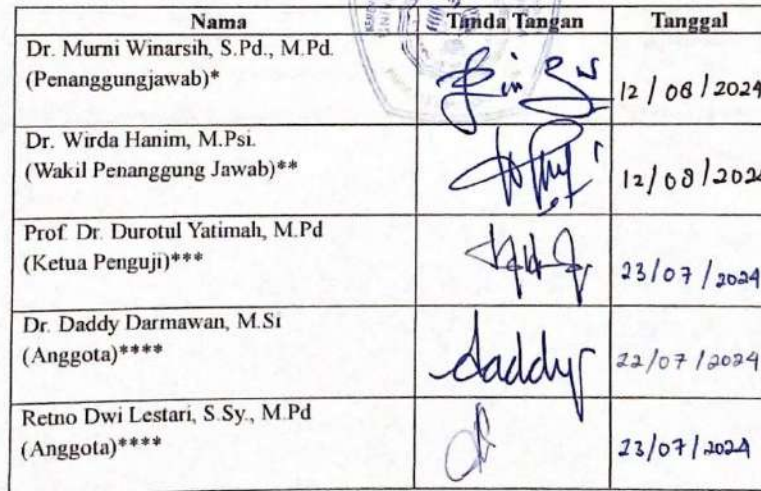 Nama Tanda Tangan Tanggal
Dr. Murni Winarsih, S.Pd., M.Pd.
(Penanggungjawab)* 12/08/2024
Dr. Wirda Hanim, M.Psi.
(Wakil Penanggung Jawab)** 12/08/2024
Prof. Dr. Durotul Yatimah, M.Pd
(Ketua Penguji)*** 23/07/2024
Dr. Daddy Darmawan, M.Si
(Anggota)**** daddy 22/07/2024
Retno Dwi Lestari, S.Sy., M.Pd
(Anggota)**** 23/07/2024